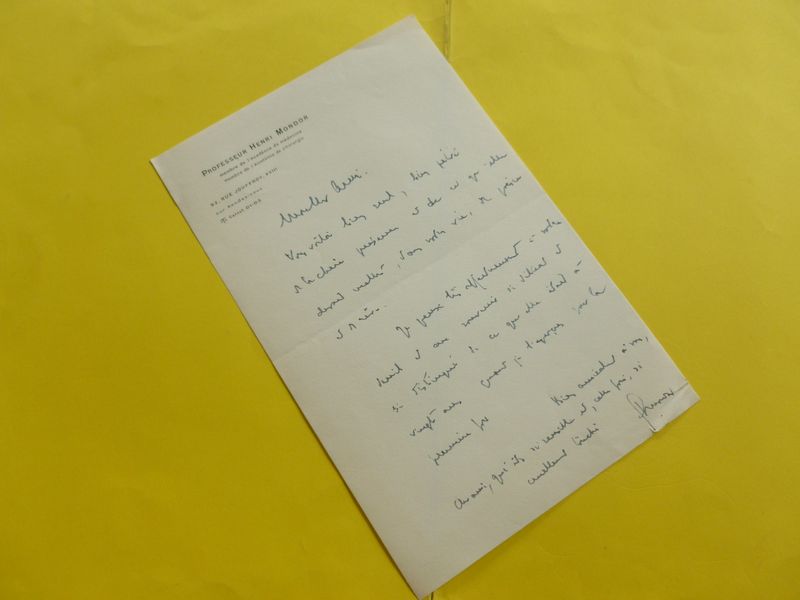 PROFESSEUR HENRI MONDOR
membre de l'académie de médecine
membre de l'académie de chirurgie
RUE JOUFFROY, XVII
sur rendez-vous
Mon cher ami.
Vous voilà bien seul, bien privé
de la chère présence et de ce qu'elle
devait mettre, dans votre vie, de
Je pense très affectueusement à votre
deuil et au souvenir si délicat et
si distingué de ce que elle était à
vingt ans quand je l'aperçus pour la
première fois
Bien amicalement à vous,
cher ami, qui êtes si sensible et, cette fois, si
cruellement touché